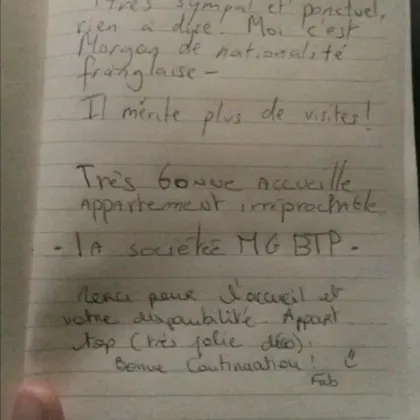 très sympa et ponctuel,
rien à dire. Moi c'est
Morgan de nationalité
franglaise -
Il mérite plus de visites!
Très bonne accueille
appartement irréprochable
- la société MG BTP -
Merci pour l'accueil et
votre disponibilité. Appart
top (très jolie déco).
Bonne Continuation!
Fab